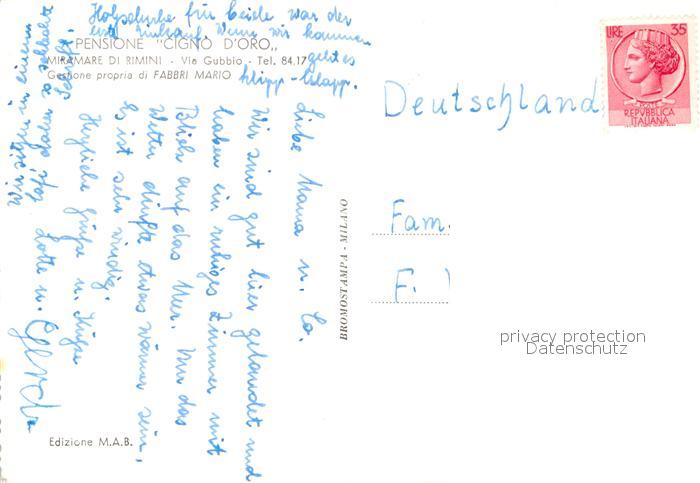 Holzschuhe für beide war der
erste Einkauf. Wenn wir kommen
geht es
klipp-klapp.
PENSIONE "CIGNO D'ORO,,
MIRAMARE DI RIMINI - Via Gubbio - Tel. 84.17
Gestione propria di FABBRI MARIO
LIRE 35
POSTE
REPVBBLICA
ITALIANA
Deutschland
Fam.
F.
Liebe Mama u. Co.
Wir sind gut hier gelandet und
haben ein ruhiges Zimmer mit
Blick auf das Meer. Nur das
Wetter dürfte etwas wärmer sein,
es ist sehr windig.
Herzliche Grüße u. Küsse
Lotte u.
Wir sitzen in einem
Café daher die schlechte
Schrift
BROMOSTAMPA - MILANO
Edizione M.A.B.
privacy protection
Datenschutz